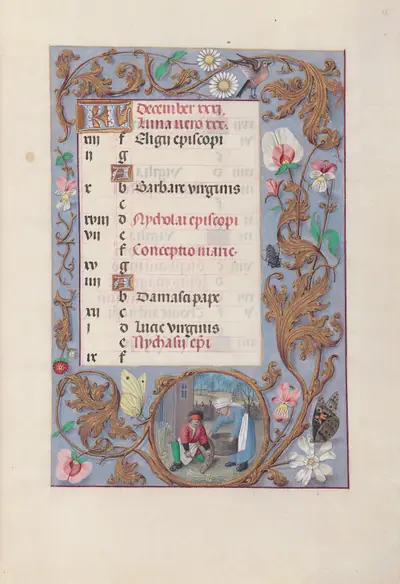 KL December xxxj.
Luna vero xxx.
xiij f Eligij episcopi
ij g
A
x b Barbare virginis
c
xviij d Nycholai episcopi
vij e
f Conceptio marie.
xv g
iiij A
b Damasci pape
xij c
j d Lucie virginis
e Nychasij epi
ix f